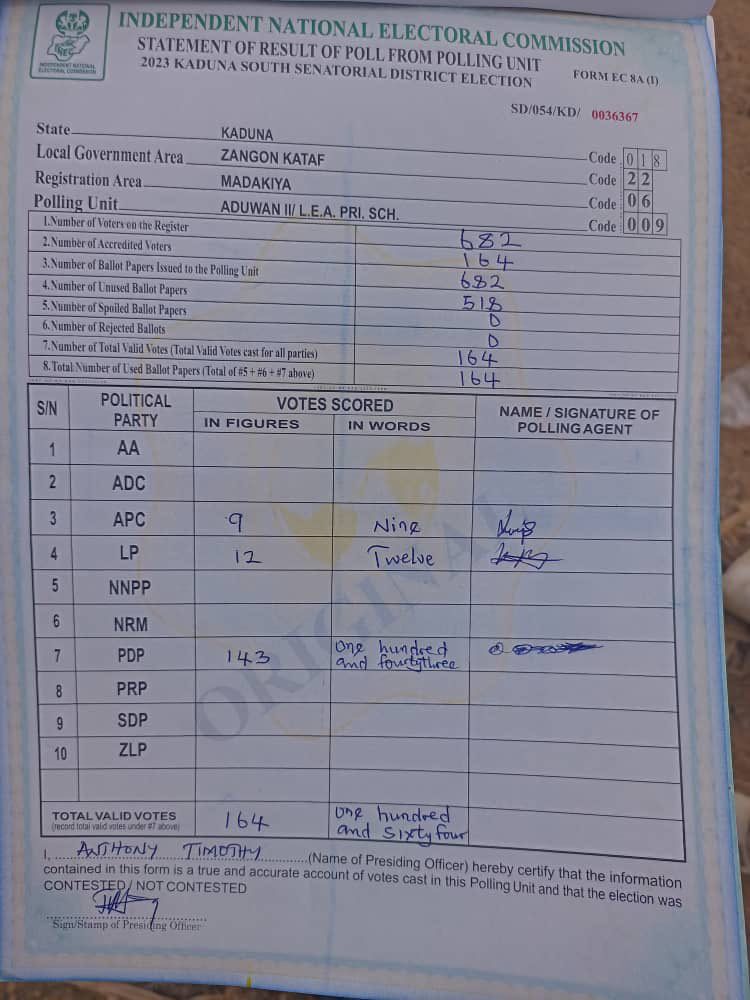 INDEPENDENT NATIONAL ELECTORAL COMMISSION
STATEMENT OF RESULT OF POLL FROM POLLING UNIT
2023 KADUNA SOUTH SENATORIAL DISTRICT ELECTION
FORM EC 8A (I)
INDEPENDENT NATIONAL
ELECTORAL COMMISSION
SD/054/KD/ 0036367
State KADUNA Code 018
Local Government Area ZANGON KATAF Code 22
Registration Area MADAKIYA Code 06
Polling Unit ADUWAN II/ L.E.A. PRI. SCH. Code 009
1.Number of Voters on the Register 682
2.Number of Accredited Voters 164
3.Number of Ballot Papers Issued to the Polling Unit 682
4.Number of Unused Ballot Papers 518
5.Number of Spoiled Ballot Papers 0
6.Number of Rejected Ballots 0
7.Number of Total Valid Votes (Total Valid Votes cast for all parties) 164
8.Total Number of Used Ballot Papers (Total of #5 + #6 + #7 above) 164
S/N POLITICAL PARTY VOTES SCORED NAME / SIGNATURE OF POLLING AGENT
IN FIGURES IN WORDS
1 AA
2 ADC
3 APC 9 Nine
4 LP 12 Twelve
5 NNPP
6 NRM
7 PDP 143 One hundred and fourtythree
8 PRP
9 SDP
10 ZLP
ORIGINAL
TOTAL VALID VOTES 164 One hundred and sixtyfour
(record total valid votes under #7 above)
I, ANTHONY TIMOTHY (Name of Presiding Officer) hereby certify that the information
contained in this form is a true and accurate account of votes cast in this Polling Unit and that the election was
CONTESTED / NOT CONTESTED
Sign/Stamp of Presiding Officer